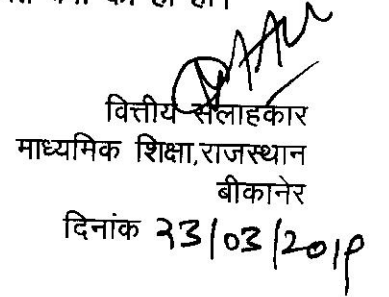 वित्तीय सलाहकार
माध्यमिक शिक्षा,राजस्थान
बीकानेर
दिनांक २३/03/2019